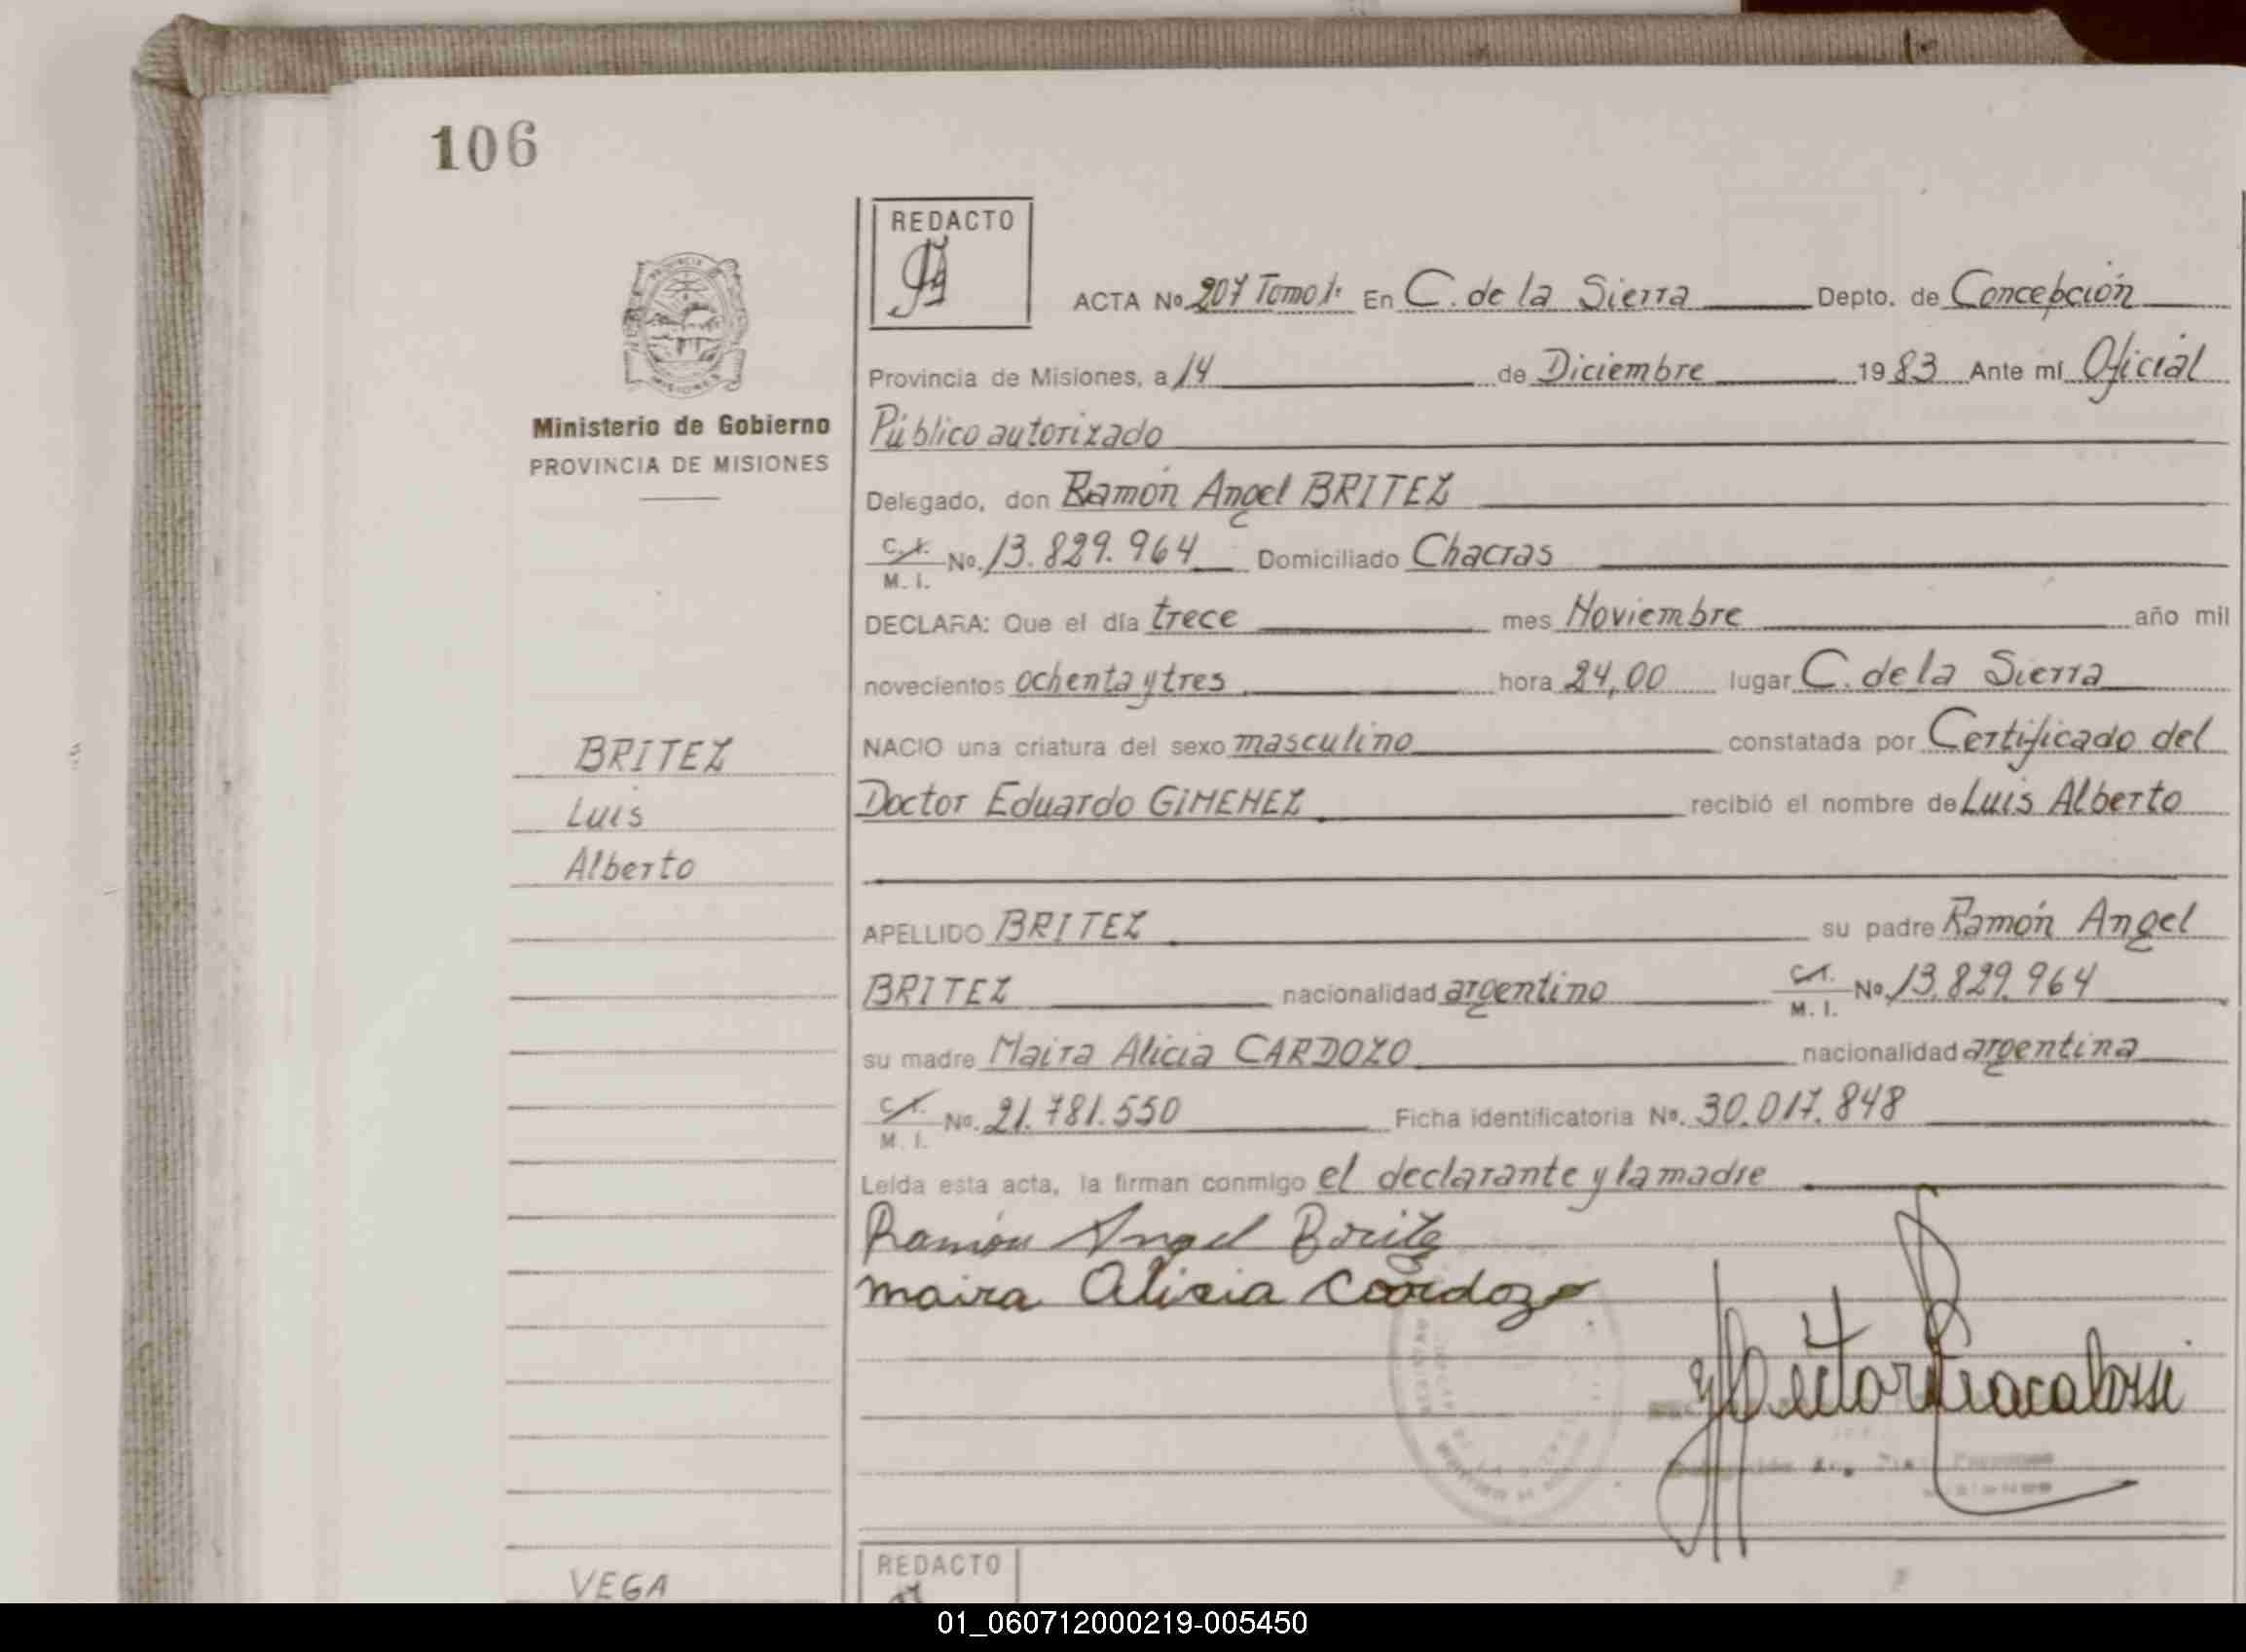 106
REDACTO
ACTA No 207 Tomo 1º En C. de la Sierra Depto. de Concepción
Provincia de Misiones, a 14 de Diciembre 1983 Ante mí Oficial
Ministerio de Gobierno
Público autorizado
PROVINCIA DE MISIONES
Delegado, don Ramón Angel BRITEZ
C. I. No. 13.829.964 Domiciliado Chacras
M. I.
DECLARA: Que el día trece mes Noviembre año mil
novecientos ochenta y tres hora 24,00 lugar C. de la Sierra
BRITEZ
NACIO una criatura del sexo masculino constatada por Certificado del
Luis
Doctor Eduardo GIMENEZ recibió el nombre de Luis Alberto
Alberto
APELLIDO BRITEZ su padre Ramón Angel
BRITEZ nacionalidad argentino C. I. No. 13.829.964
M. I.
su madre Maira Alicia CARDOZO nacionalidad argentina
C. I. No. 21.781.550 Ficha identificatoria No. 30.017.848
M. I.
Leída esta acta, la firman conmigo el declarante y la madre
Ramón Angel Britez
maira Alicia Cardozo
REDACTO
VEGA
01_060712000219-005450